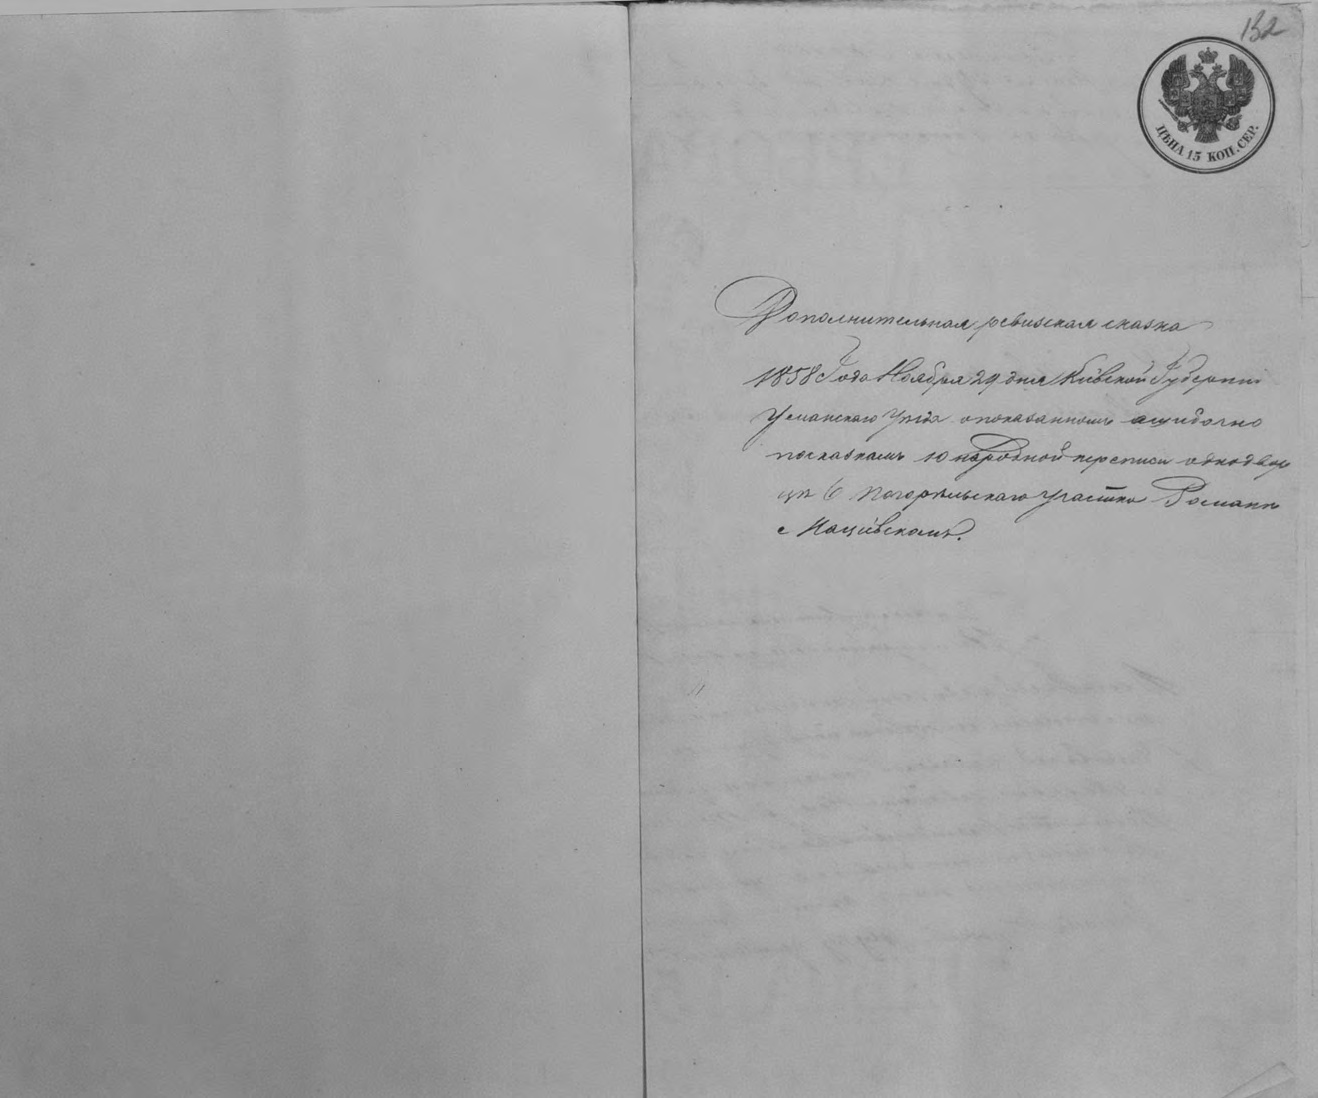 132
ЦѢНА 15 КОП. СЕР.
Дополнительная ревизская сказка
1858 Года Ноября 29 дня Кіевской Губерніи
Уманскаго Уѣзда о показанномъ ошибочно
по сказкамъ 10 народной переписи однодвор
цѣ 6 Погорѣльскаго участка Романѣ
с Мацѣевскомъ.